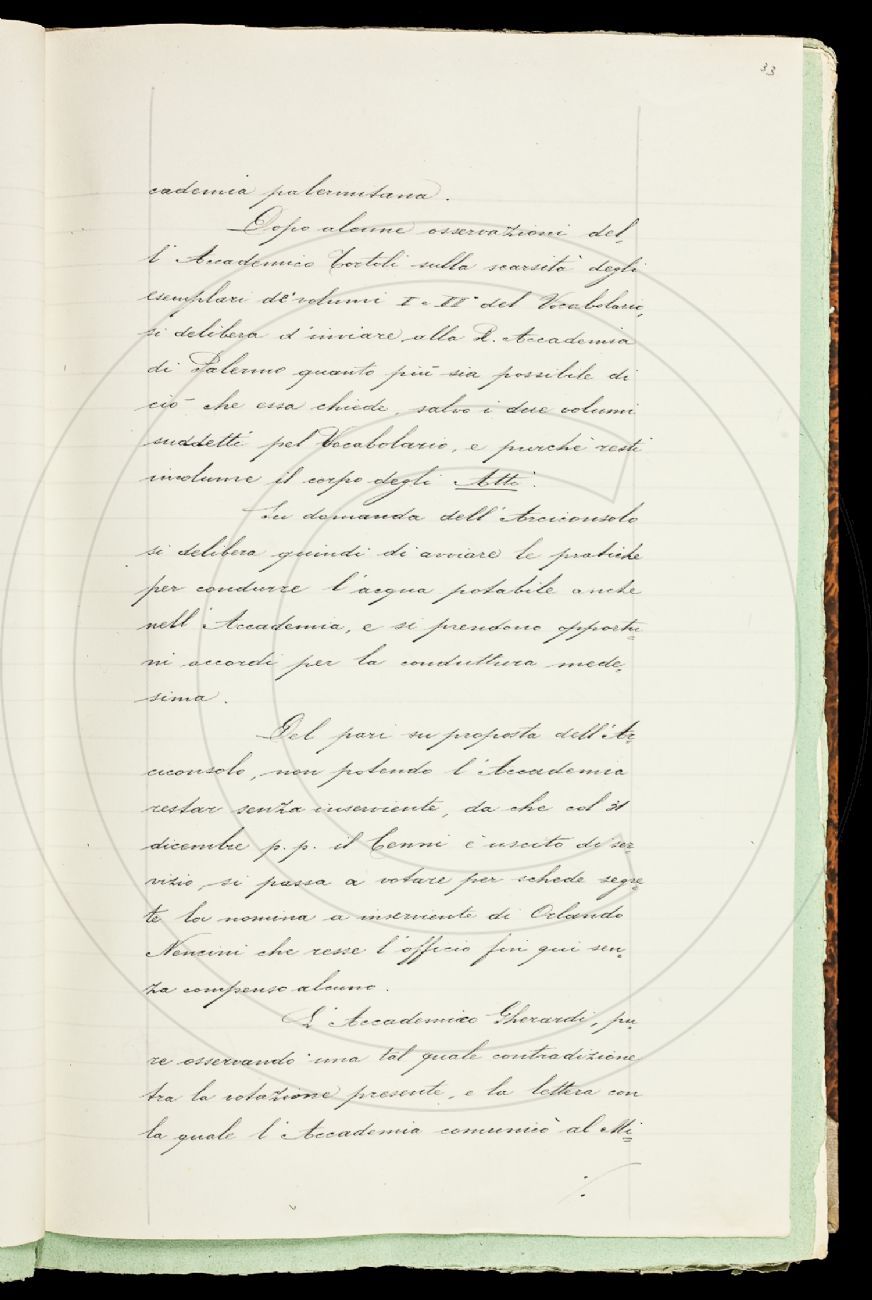 33
cademia palermitana.
Dopo alcune osservazioni del-
l'Accademico Tortoli sulla scarsità degli
esemplari de' volumi I e II° del Vocabolario,
si delibera d'inviare alla R. Accademia
di Palermo quanto più sia possibile di
ciò che essa chiede, salvo i due volumi
suddetti pel Vocabolario, e purchè resti
incolume il corpo degli Atti.
Su domanda dell'Arciconsolo
si delibera quindi di avviare le pratiche
per condurre l'acqua potabile anche
nell'Accademia, e si prendono opportu=
ni accordi per la conduttura mede=
sima.
Del pari su proposta dell'Ar=
ciconsolo, non potendo l'Accademia
restar senza inserviente, da che col 31
dicembre p. p. il Cenni è uscito di ser=
vizio, si passa a votare per schede segre=
te la nomina a inserviente di Orlando
Nencini che resse l'officio fin qui sen=
za compenso alcuno.
L'Accademico Gherardi, pu=
re osservando una tal quale contradizione
tra la votazione presente, e la lettera con
la quale l'Accademia comunicò al Mi=
./.